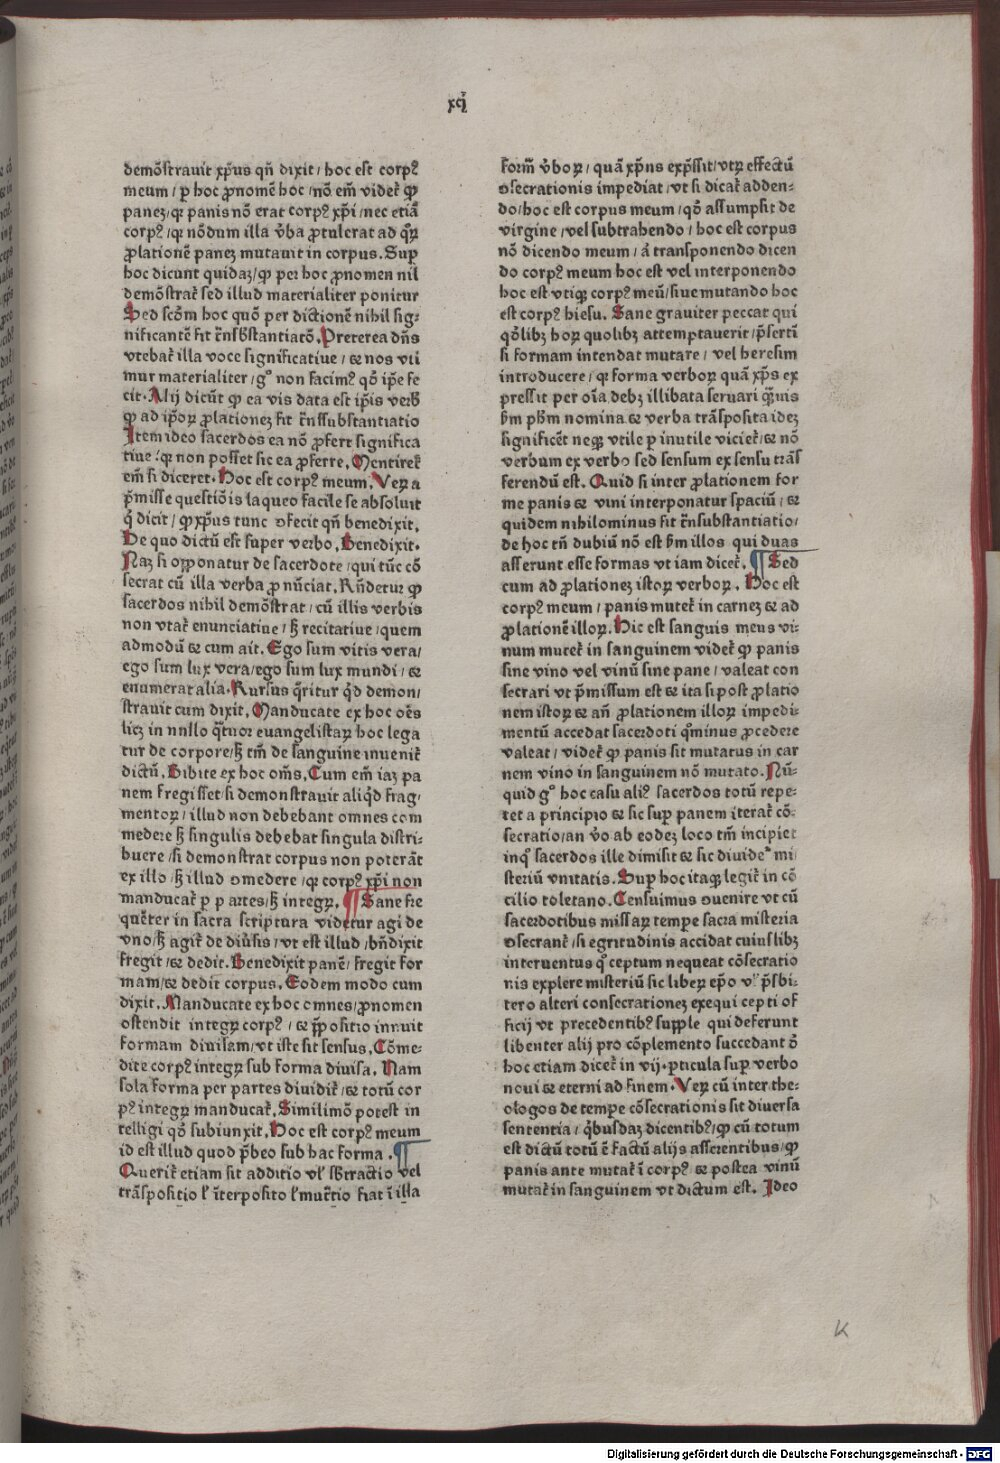 xcj
demõstrauit xp̃us qñ dixit / hoc est corpꝰ
meum / p̱ hoc ꝓnomẽ hoc / nõ em̃ videt̃ ꝙ
paneʒ / qꝛ panis nõ erat corpꝰ xp̃i / nec etiã
corpꝰ / qꝛ nõdum illa v̾ba ꝓtulerat ad qꝝ̃
ꝓlationẽ paneʒ mutauit in corpus. Suꝑ
hoc dicunt quidaʒ / ꝙ per hoc ꝓnomen nil
demõstrat̃ sed illud materialiter ponitur
Sed scd̃m hoc quõ per dictionẽ nihil sig⸗
nificantẽ fit t̃nsb̃stantiatõ. Preterea dñs
vtebat̃ illa voce significatiue / ⁊ nos vti
mur materialiter / gº non facimꝰ qd̾ ip̃e fe
cit. Alij dicũt ꝙ ea vis data est ip̃is verb̾
ꝙ ad ip̃oꝝ ꝓlationeʒ fit t̃nssubstantiatio
Item ideo sacerdos ea nõ ꝓfert significa
tiue / qꝛ non posset sic ea ꝓferre. Mentiret̃
em̃ si diceret. Hoc est corpꝰ meum. Veꝝ a
p̃misse questiõis laqueo facile se absoluit
q̾ dicit / ꝙ xp̃us tunc ↄfecit qñ benedixit.
De quo dictũ est super verbo. Benedixit.
Naʒ si opponatur de sacerdote / qui tũc cõ
secrat cũ illa verba ꝓnũciat. Rñdetur ꝙ
sacerdos nihil demõstrat / cũ illis verbis
non vtat̃ enunciatiue / sʒ recitatiue / quem
admodũ ⁊ cum ait. Ego sum vitis vera /
ego sum lux vera / ego sum lux mundi / ⁊
enumerat alia. Rursus q̃ritur qd̾ demon /
strauit cum dixit. Manducate ex hoc oẽs
licʒ in nullo q̃tuor euangelistaꝝ hoc lega
tur de corpore / sʒ tm̃ de sanguine inuenit̃
dictũ. Bibite ex hoc om̃s. Cum em̃ iaʒ pa
nem fregisset / si demonstrauit aliqd̾ frag /
mentoꝝ / illud non debebant omnes com
medere sʒ singulis debebat singula distri⸗
buere / si demonstrat corpus non poterãt
ex illo / sʒ illud ↄmedere / qꝛ corpꝰ xp̃i non
manducat̃ p̱ p̱artes / sʒ integꝝ. ¶ Sane fre
quẽter in sacra scriptura videtur agi de
vno / sʒ agit̃ de diũsis / vt est illud / bñdixit
fregit / ⁊ dedit. Benedixit panẽ / fregit for
mam / ⁊ dedit corpus. Eodem modo cum
dixit. Manducate ex hoc omnes / ꝓnomen
ostendit integꝝ corpꝰ / ⁊ p̃positio innuit
formam diuisam / vt iste sit sensus. Cõme⸗
dite corpꝰ integꝝ sub forma diuisa. Nam
sola forma per partes diuidit̃ / ⁊ totũ cor
pꝰ integꝝ manducat̃. Similimõ potest in
telligi qd̾ subiunxit. Hoc est corpꝰ meum
id est illud quod p̃beo sub hac forma. ¶
Querit̃ etiam sit additio vl̾ sb̾tractio vel
trãspositio l̾ ĩterposito l̾ mutt̃io fiat ĩ illa
form̃ v̾boꝝ / quã xp̃ns exp̃ssit / vtꝝ effectũ
ↄsecrationis impediat / vt si dicat̃ adden⸗
do / hoc est corpus meum / qd̾ assumpsit de
virgine / vel subtrahendo / hoc est corpus
nõ dicendo meum / ã transponendo dicen
do corpꝰ meum hoc est vel interponendo
hoc est vtiqʒ corpꝰ meũ / siue mutando hoc
est corpꝰ hiesu. Sane grauiter peccat qui
qd̾libʒ hoꝝ quolibʒ attemptauerit / p̃serti
si formam intendat mutare / vel heresim
introducere / qꝛ forma verboꝝ quã xp̃s ex
pressit per oĩa debʒ illibata seruari q̃muis
b̃m pb̃m nomina ⁊ verba trãsposita ideʒ
significẽt neqʒ vtile p̱ inutile viciet̃ / ⁊ nõ
verbum ex verbo sed sensum ex sensu trãs
ferendũ est. Quid si inter ꝓlationem for
me panis ⁊ vini interponatur spaciũ / ⁊
quidem nihilominus fit t̃nsubstantiatio /
de hoc tñ dubiũ nõ est b̃m illos qui duas
asserunt esse formas vt iam dicet̃. ¶ Sed
cum ad ꝓlationeʒ istoꝝ verboꝝ. Hoc est
corpꝰ meum / panis mutet̃ in carneʒ ⁊ ad
ꝓlationẽ illoꝝ. Hic est sanguis meus vi⸗
num mutet̃ in sanguinem videt̃ ꝙ panis
sine vino vel vinũ sine pane / valeat con
secrari vt p̃missum est ⁊ ita si post ꝓlatio
nem istoꝝ ⁊ añ ꝓlationem illoꝝ impedi⸗
mentũ accedat sacerdoti q̃minus ꝓcedere
valeat / videt̃ ꝙ panis sit mutatus in car
nem vino in sanguinem nõ mutato. Nũ⸗
quid gº hoc casu aliꝰ sacerdos totũ repe⸗
tet a principio ⁊ sic suꝑ panem iterat̃ cõ⸗
secratio / an v̾o ab eodeʒ loco tm̃ incipiet
inq̾ sacerdos ille dimisit ⁊ sic diuideˢ mi /
steriũ vnitatis. Suꝑ hoc itaqʒ legit̃ in cõ
cilio toletano. Censuimus ↄuenire vt cũ
sacerdotibus missaꝝ tempe sacra misteria
ↄsecrant̃ / si egritudinis accidat cuiuslibʒ
interuentus q̾ ceptum nequeat cõsecratio
nis explere misteriũ sic libeꝝ ep̃o vl̾ p̃sbi⸗
tero alteri consecrationeʒ exequi cepti of
ficij vt precedentibꝰ supple qui deferunt
libenter alij pro cõplemento succedant d̾
hoc etiam dicet̃ in vij. ꝑticula suꝑ verbo
noui ⁊ eterni ad finem. Veꝝ cũ inter the⸗
ologos de tempe cõsecrationis sit diuersa
sententia / q̾busdaʒ dicentibꝰ / ꝙ cũ totum
est dictũ totũ ẽ factũ alijs asserentibus / ꝙ
panis ante mutat̃ ĩ corpꝰ ⁊ postea vinũ
mutat̃ in sanguinem vt dictum est. Ideo
K
Digitalisierung gefördert durch die Deutsche Forschungsgemeinschaft - DFG